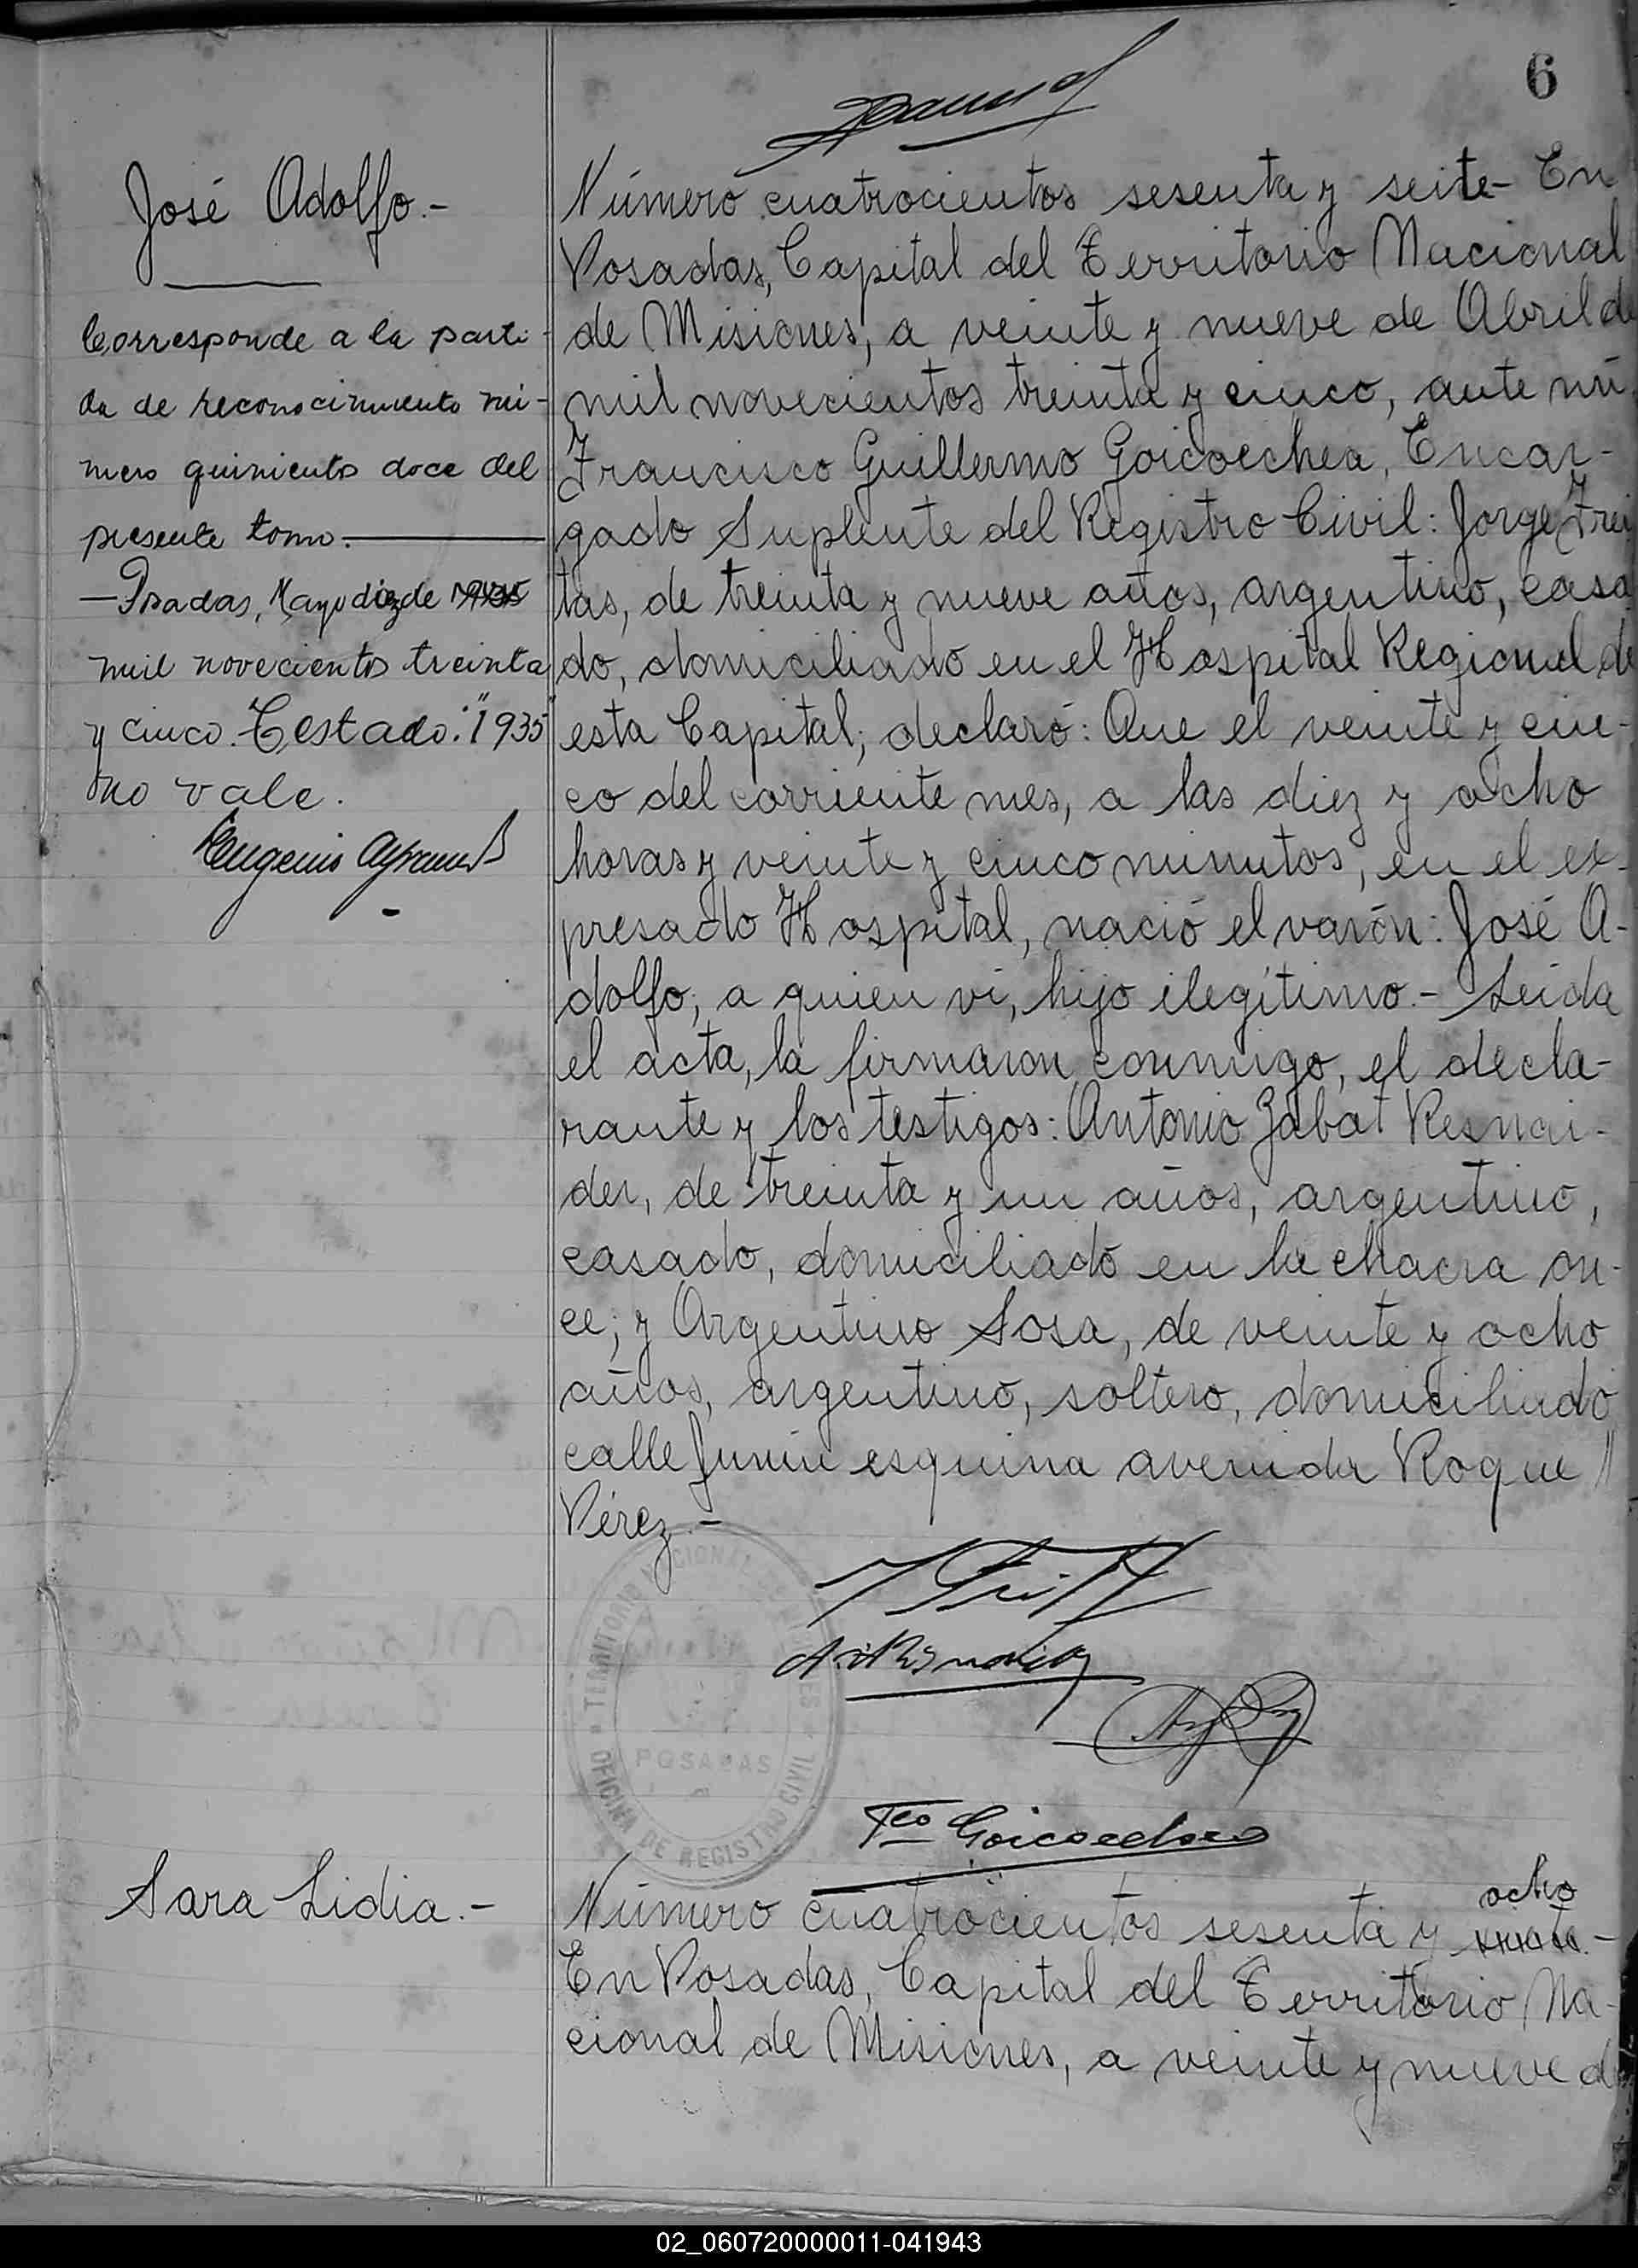 6
José Adolfo.-
Corresponde a la parti-
da de reconocimiento nú-
mero quinientos doce del
presente tomo.
- Posadas, Mayo diez de 1935
mil novecientos treinta
y cinco. Testado: "1935"
no vale.
Número cuatrocientos sesenta y seite- En
Posadas, Capital del Territorio Nacional
de Misiones, a veinte y nueve de Abril de
mil novecientos treinta y cinco, ante mí,
Francisco Guillermo Goicoechea, Encar-
gado Suplente del Registro Civil: Jorge Frei
tas, de treinta y nueve años, argentino, casa
do, domiciliado en el Hospital Regional de
esta Capital; declaró: Que el veinte y cin-
co del corriente mes, a las diez y ocho
horas y veinte y cinco minutos, en el ex-
presado Hospital, nació el varón: José A-
dolfo; a quien vi, hijo ilegítimo.- Leída
el acta, la firmaron conmigo, el decla-
rante y los testigos: Antonio Zabat Resnai-
der, de treinta y un años, argentino,
casado, domiciliado en la chacra on-
ce; y Argentino Sosa, de veinte y ocho
años, argentino, soltero, domiciliado
calle Junín esquina avenida Roque
Pérez.-
TERRITORIO NACIONAL DE MISIONES
POSADAS
OFICINA DE REGISTRO CIVIL
Fco Goicoechea
Sara Lidia.-
ocho
Número cuatrocientos sesenta y
En Posadas, Capital del Territorio Na-
cional de Misiones, a veinte y nueve d
02_060720000011-041943